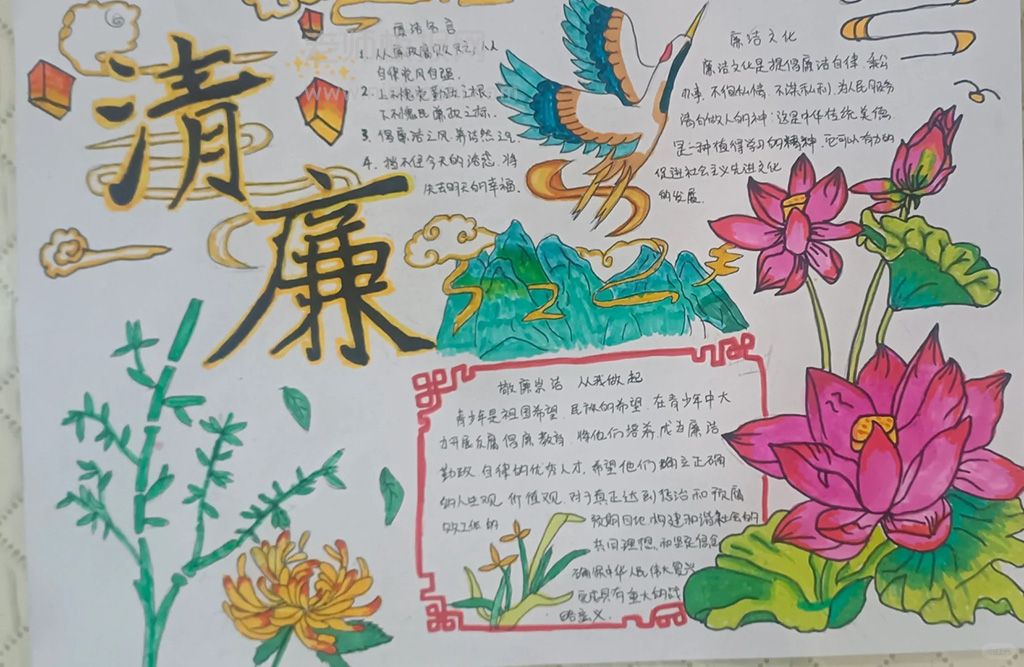 清廉
廉洁名言
1. 从廉政
自律党风自强.
2. 上不愧党勤政之根,
不愧民廉政之标.
3. 倡廉洁之风 养浩然之
4. 挡不住今天的诱惑, 将
失去明天的幸福.
廉洁文化
廉洁文化是提倡廉洁自律、秉公
办事、不徇私情、不谋私利、为民服务
清白做人的
是一种值得学习的精神, 它可以有力的
促进社会主义先进文化
的发展.
敬廉崇洁 从我做起
青少年是祖国希望, 民族的希望, 在青少年中大
力开展反腐倡廉教育, 将他们培养成为廉洁
勤政, 自律的优秀人才, 希望他们确立正确
的人生观, 价值观, 对于真正达到惩治和预腐
败工作的
预期目地, 构建和谐社会的
共同理想, 和坚定信念
确保中华人民伟大复兴
更具有重大的战
略意义.